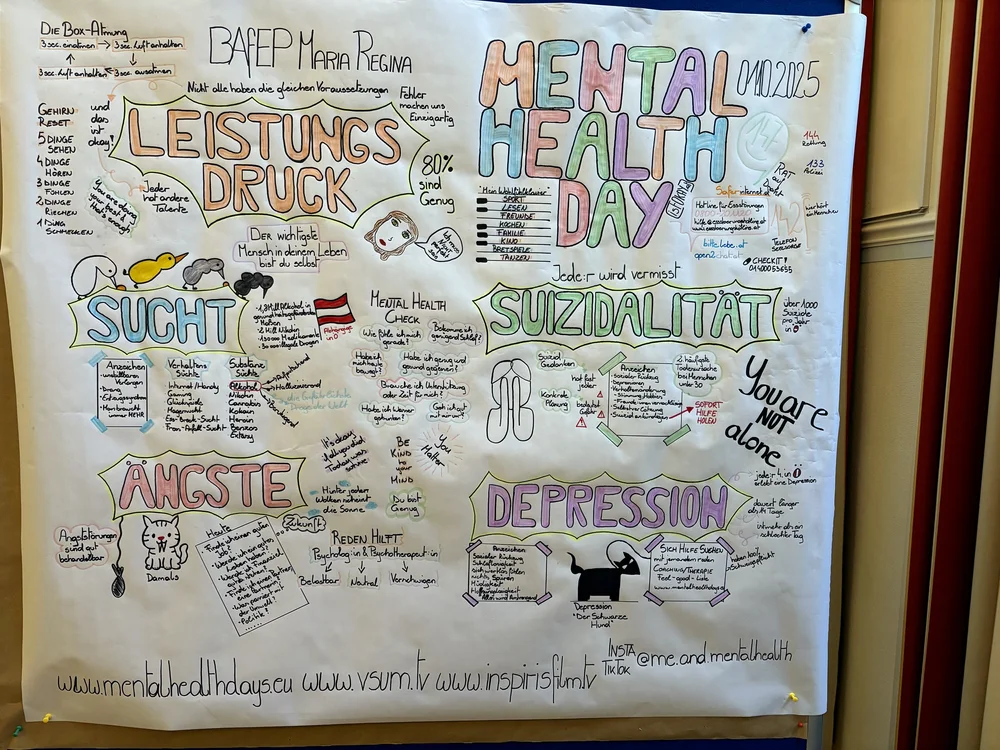 Die Box-Atmung
3 sec. einatmen → 3 sec. Luft anhalten
3 sec. Luft anhalten ← 3 sec. ausatmen
BAFEP MARIA REGINA
Nicht alle haben die gleichen Voraussetzungen
Fehler
machen uns
Einzigartig
GEHIRN
RESET
5 DINGE
SEHEN
4 DINGE
HÖREN
3 DINGE
FÜHLEN
2 DINGE
RIECHEN
1 DING
SCHMECKEN
und
das
ist
okay!
LEISTUNGS
DRUCK
80%
sind
Genug
You are doing
your best &
that's
enough
Jeder
hat andere
Talente
Der wichtigste
Mensch in deinem Leben
bist du selbst
MENTAL
HEALTH
DAY
01.10.2025
144
Rettung
133
Polizei
"Mein Wohlfühlcluster"
SPORT
LESEN
FREUNDE
KOCHEN
FAMILIE
KINO
BRETSPIELE
TANZEN
RAT
Saferinternet.at
Hotline für Essstörungen
bittelebe.at
open2chat.at
TELEFON
SEELSORGE
CHECKIT!
01 4000 53655
Jede:r wird vermisst
SUCHT
Abhängige
MENTAL HEALTH
CHECK
Wie fühle ich mich
gerade?
Bekomme ich
genügend Schlaf?
Habe ich
mich heute
bewegt?
Habe ich genug und
gesund gegessen?
Brauche ich Unterstützung
oder Zeit für mich?
Habe ich Wasser
getrunken?
Geh ich gut
mit mir um?
Anzeichen
Verhaltens
Süchte
Internet/Handy
Gaming
Glücksspiele
Magersucht
Ess-Brech-Sucht
Substanz
Süchte
Alkohol
Nikotin
Cannabis
Kokain
Heroin
Benzos
Extasy
SUIZIDALITÄT
über 1000
Suizide
pro Jahr
in Ö
Suizid
Gedanken
hat fast
jeder
Konkrete
Planung
bedeutet
Gefahr
Anzeichen
2. häufigste
Todesursache
bei Menschen
unter 30
SOFORT
HILFE
HOLEN
You are
NOT
alone
ÄNGSTE
It's okay
if all you did
Today was
survive
BE
KIND
to your
MIND
You
Matter
Hinter jeden
Wolken scheint
die Sonne
Du bist
Genug
Angststörungen
sind gut
behandelbar
Damals
Heute
Zukunft
REDEN HILFT
Psycholog:in & Psychotherapeut:in
Belastbar
Neutral
Verschwiegen
DEPRESSION
jede:r 4. in Ö
erlebt eine Depression
dauert länger
als 14 Tage
ist mehr als ein
schlechter Tag
Anzeichen
Sozialer Rückzug
Schlaflosigkeit
nichts Spüren
Müdigkeit
Alles wird Anstrengend
Depression
"Der Schwarze
Hund"
SICH HILFE SUCHEN
mit jemanden reden
COACHING/THERAPIE
Feel-good-Liste
www.mentalhealthdays.eu
INSTA
TIKTOK
@me.and.mentalhealth
www.mentalhealthdays.eu www.vsum.tv www.inspirisfilm.tv